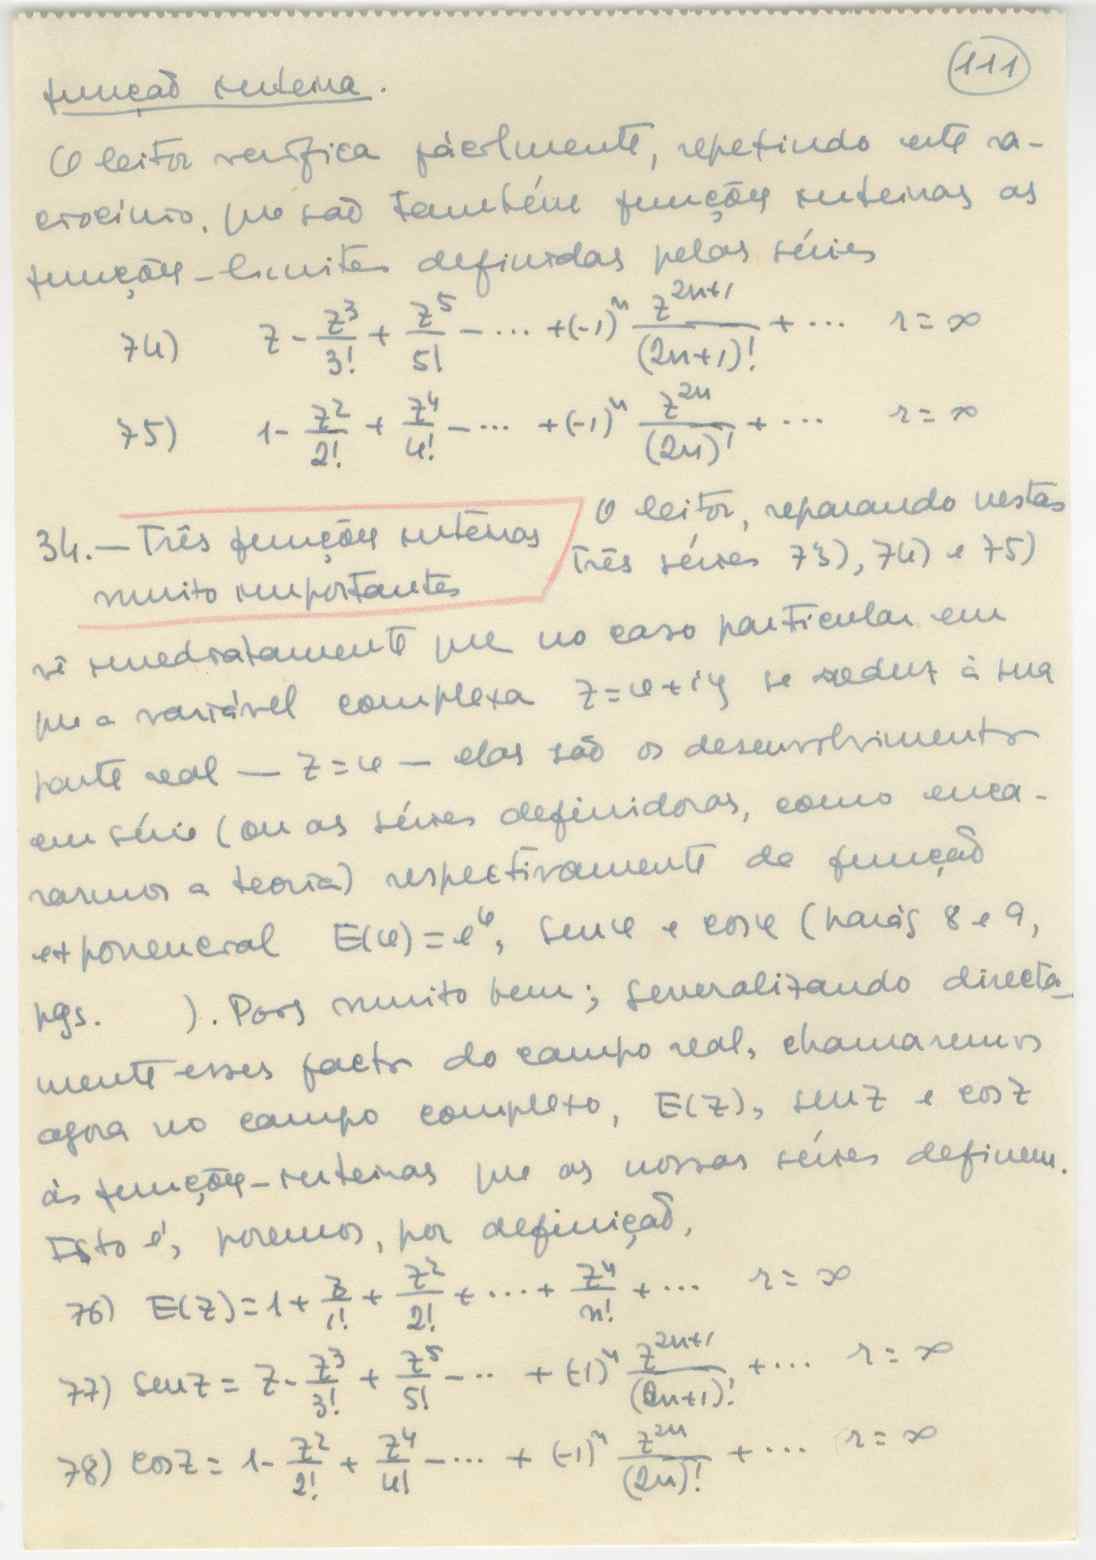 111
função inteira.
O leitor verifica fàcilmente, repetindo este ra-
ciocínio, que são também funções inteiras as
funções-limites definidas pelas séries
74) z - z³/3! + z⁵/5! - ... + (-1)ⁿ z²ⁿ⁺¹/(2n+1)! + ... r = ∞
75) 1 - z²/2! + z⁴/4! - ... + (-1)ⁿ z²ⁿ/(2n)! + ... r = ∞
34. — Três funções inteiras
muito importantes
O leitor, reparando nestas
três séries 73), 74) e 75)
vê imediatamente que no caso particular em
que a variável complexa z=x+iy se reduz à sua
parte real — z=x — elas são os desenvolvimentos
em série (ou as séries definidoras, como enca-
rarmos a teoria) respectivamente da função
exponencial E(x) = eˣ, sen x e cos x (parágs 8 e 9,
pgs. ). Pois muito bem; generalizando directa-
mente esses factos do campo real, chamaremos
agora no campo complexo, E(z), sen z e cos z
às funções-inteiras que as nossas séries definem.
Isto é, poremos, por definição,
76) E(z) = 1 + z/1! + z²/2! + ... + zⁿ/n! + ... r = ∞
77) sen z = z - z³/3! + z⁵/5! - ... + (-1)ⁿ z²ⁿ⁺¹/(2n+1)! + ... r = ∞
78) cos z = 1 - z²/2! + z⁴/4! - ... + (-1)ⁿ z²ⁿ/(2n)! + ... r = ∞